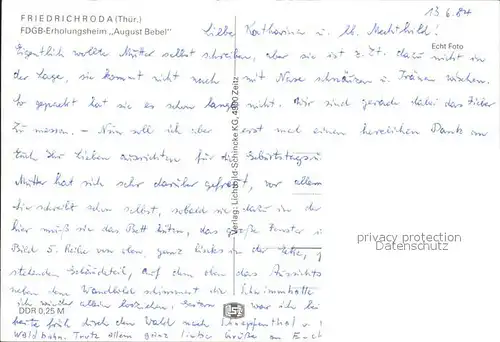 13.6.84
FRIEDRICHRODA (Thür.)
FDGB-Erholungsheim „August Bebel"
Liebe Katharina u. lb. Mechthild!
Echt Foto
Eigentlich wollte Mutter selbst schreiben, aber sie ist z. Zt. dazu nicht in
der Lage, sie kommt nicht nach mit Nase schnäuzen u. Tränen wischen.
So gepackt hat sie es schon lange nicht. Wir sind gerade dabei das Fieber
zu messen. – Nun soll ich aber erst mal einen herzlichen Dank an
Euch Ihr Lieben ausrichten für die Geburtstags
Mutter hat sich sehr darüber gefreut, vor allem
schreibt schon selbst, sobald sie dazu in der
hier muß sie das Bett hüten, das große Fenster
Bild 5. Reihe von oben, ganz links in der Ecke,
stehenden Gebäudeteil, auf dem oben das Aussichts
neben dem Wandbild schimmert die Schwimmhalle
ich wieder allein losziehen, gestern war ich
heute früh durch den Wald nach Schnepfenthal u.
Waldbahn. Trotz allem ganz liebe Grüße an Euch
Verlag: Lichtbild-Schincke KG, 4900 Zeitz
privacy protection
DDR 0,25 M